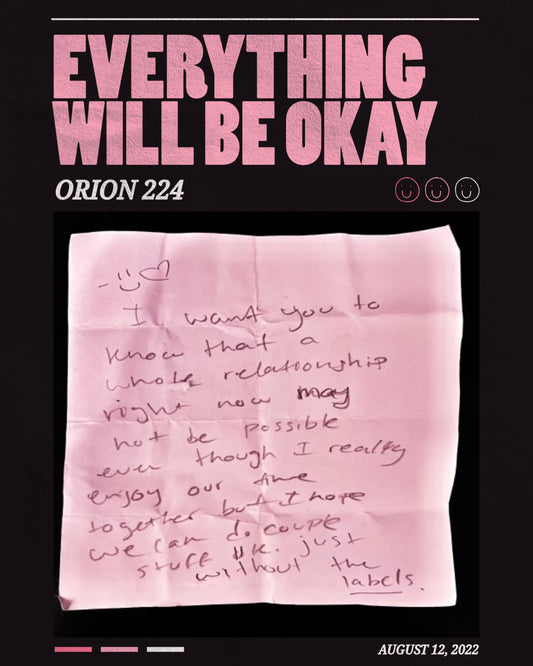 EVERYTHING
WILL BE OKAY
ORION 224
I want you to
know that a
whole relationship
right now may
not be possible
even though I really
enjoy our time
together but I hope
we can do couple
stuff just
without the
labels.
AUGUST 12, 2022